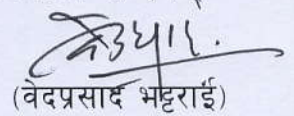 (वेदप्रसाद भट्टराई)